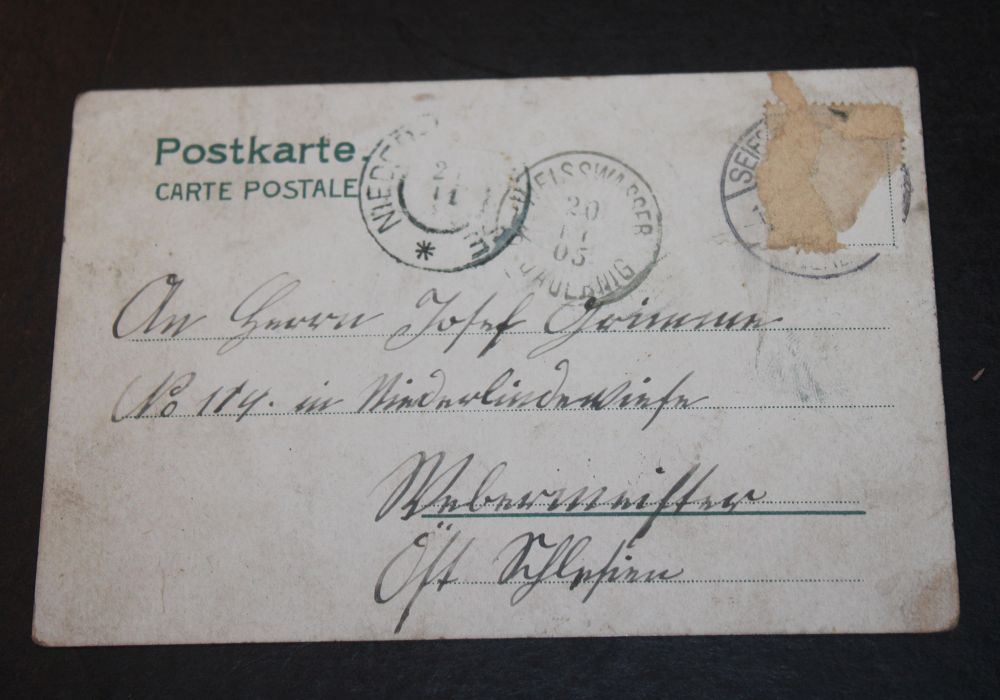 Postkarte.
CARTE POSTALE
NIEDER
WEISSWASSER
20
05
JAUERNIG
SEIF
An Herrn Josef Grimme
No 184. in Niederlindewiese
Webermeister
Öst Schlesien